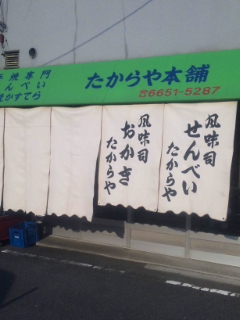 手焼専門
せんべい
炭かすてら
たからや本舗
☎6651-5287
風味司
せんべい
たからや
風味司
おかき
たからや